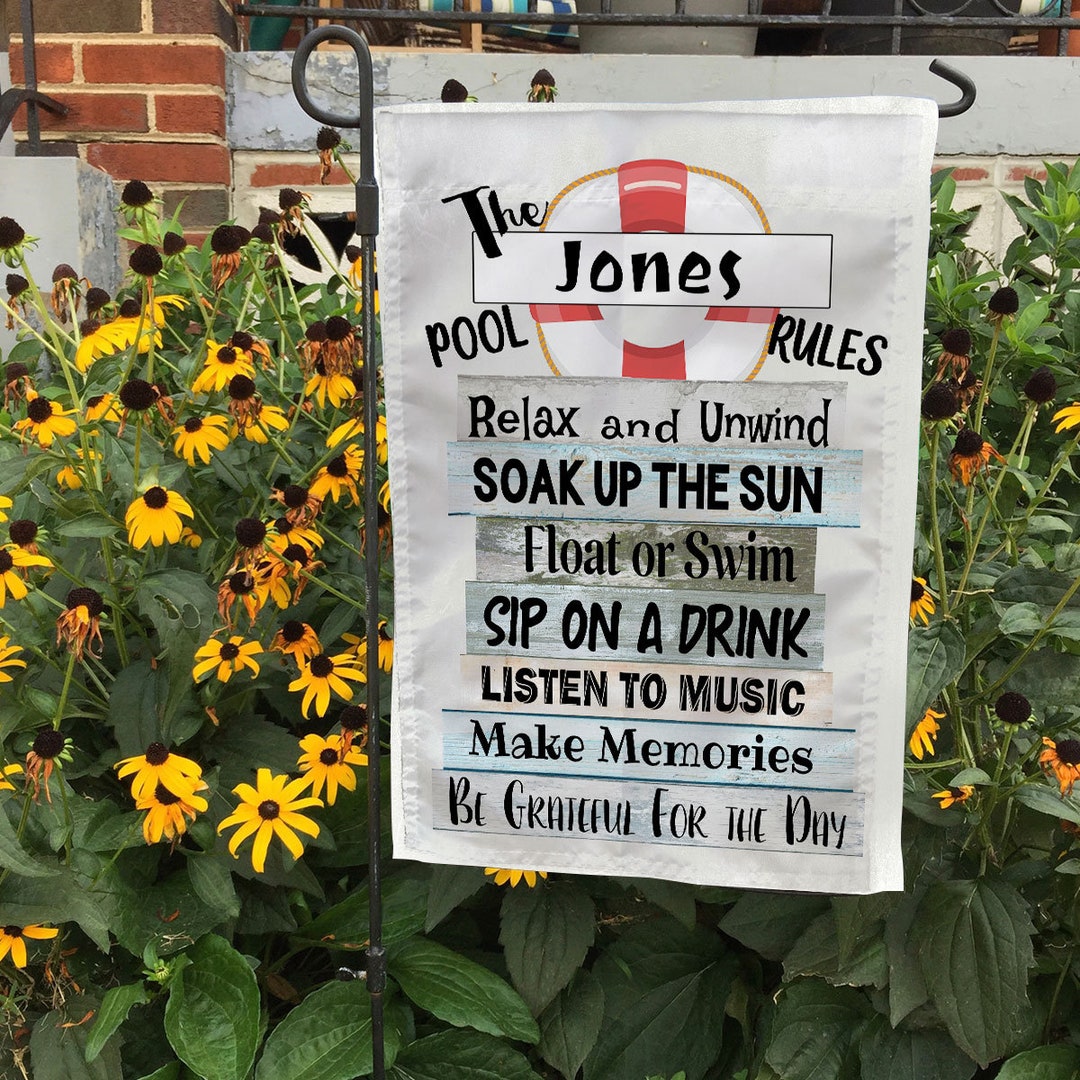 The
Jones
POOL RULES
Relax and Unwind
SOAK UP THE SUN
Float or Swim
SIP ON A DRINK
LISTEN TO MUSIC
Make Memories
Be Grateful For the Day